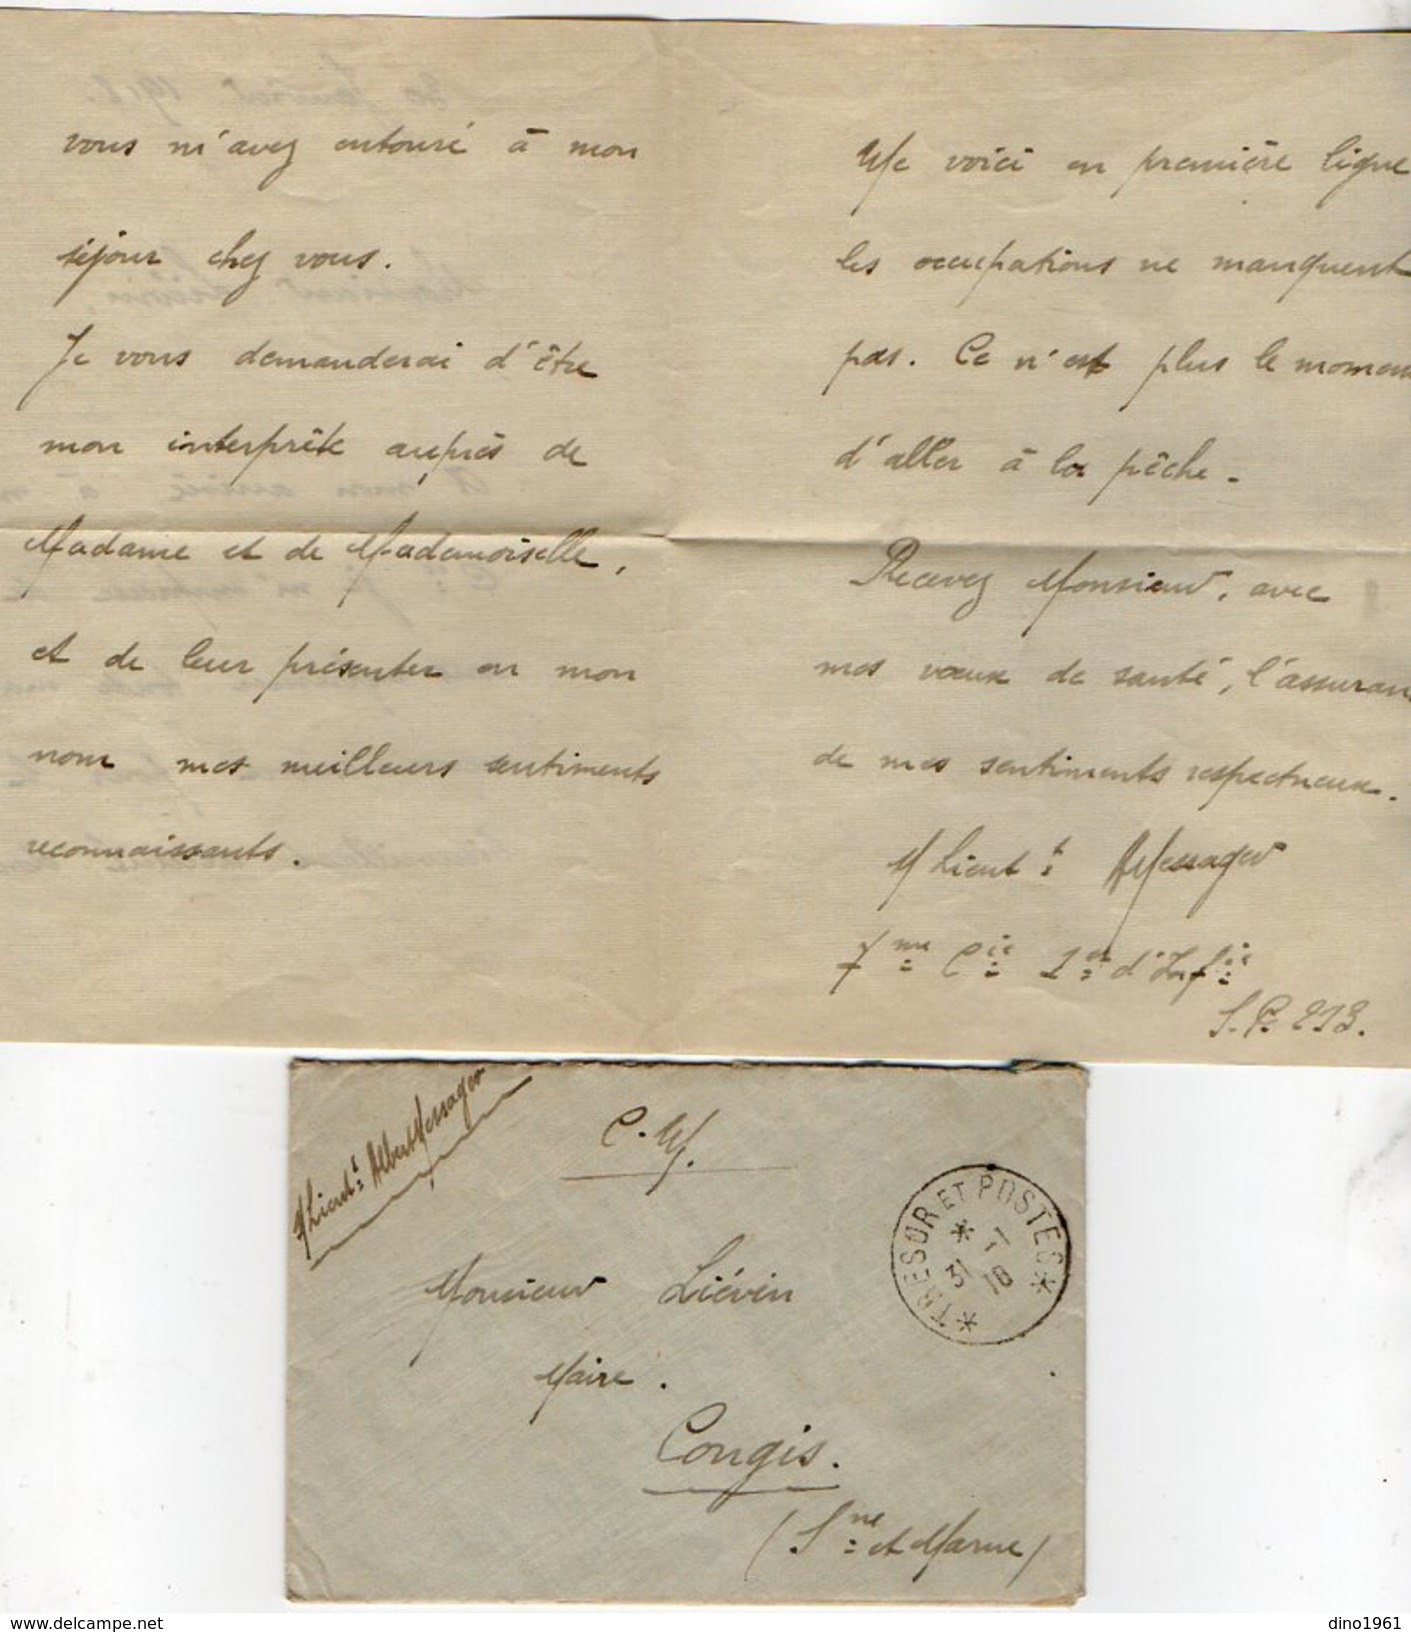 vous m'avez entouré à mon
séjour chez vous.
Je vous demanderai d'être
mon interprète auprès de
Madame et de Mademoiselle,
et de leur présenter en mon
nom mes meilleurs sentiments
reconnaissants.
Me voici en première ligne
les occupations ne manquent
pas. Ce n'est plus le momen
d'aller à la pêche.
Recevez Monsieur, avec
mes vœux de santé, l'assuran
de mes sentiments respectueux.
S/Lieut t AMessager
7me Cie 1er d'Infie
S.P. 213.
S/Lieutt Albert Messager
C.M.
TRESOR ET POSTES
31 -1
18
Monsieur Liévin
Maire.
Congis.
(Sne et Marne)
www.delcampe.net
dino1961